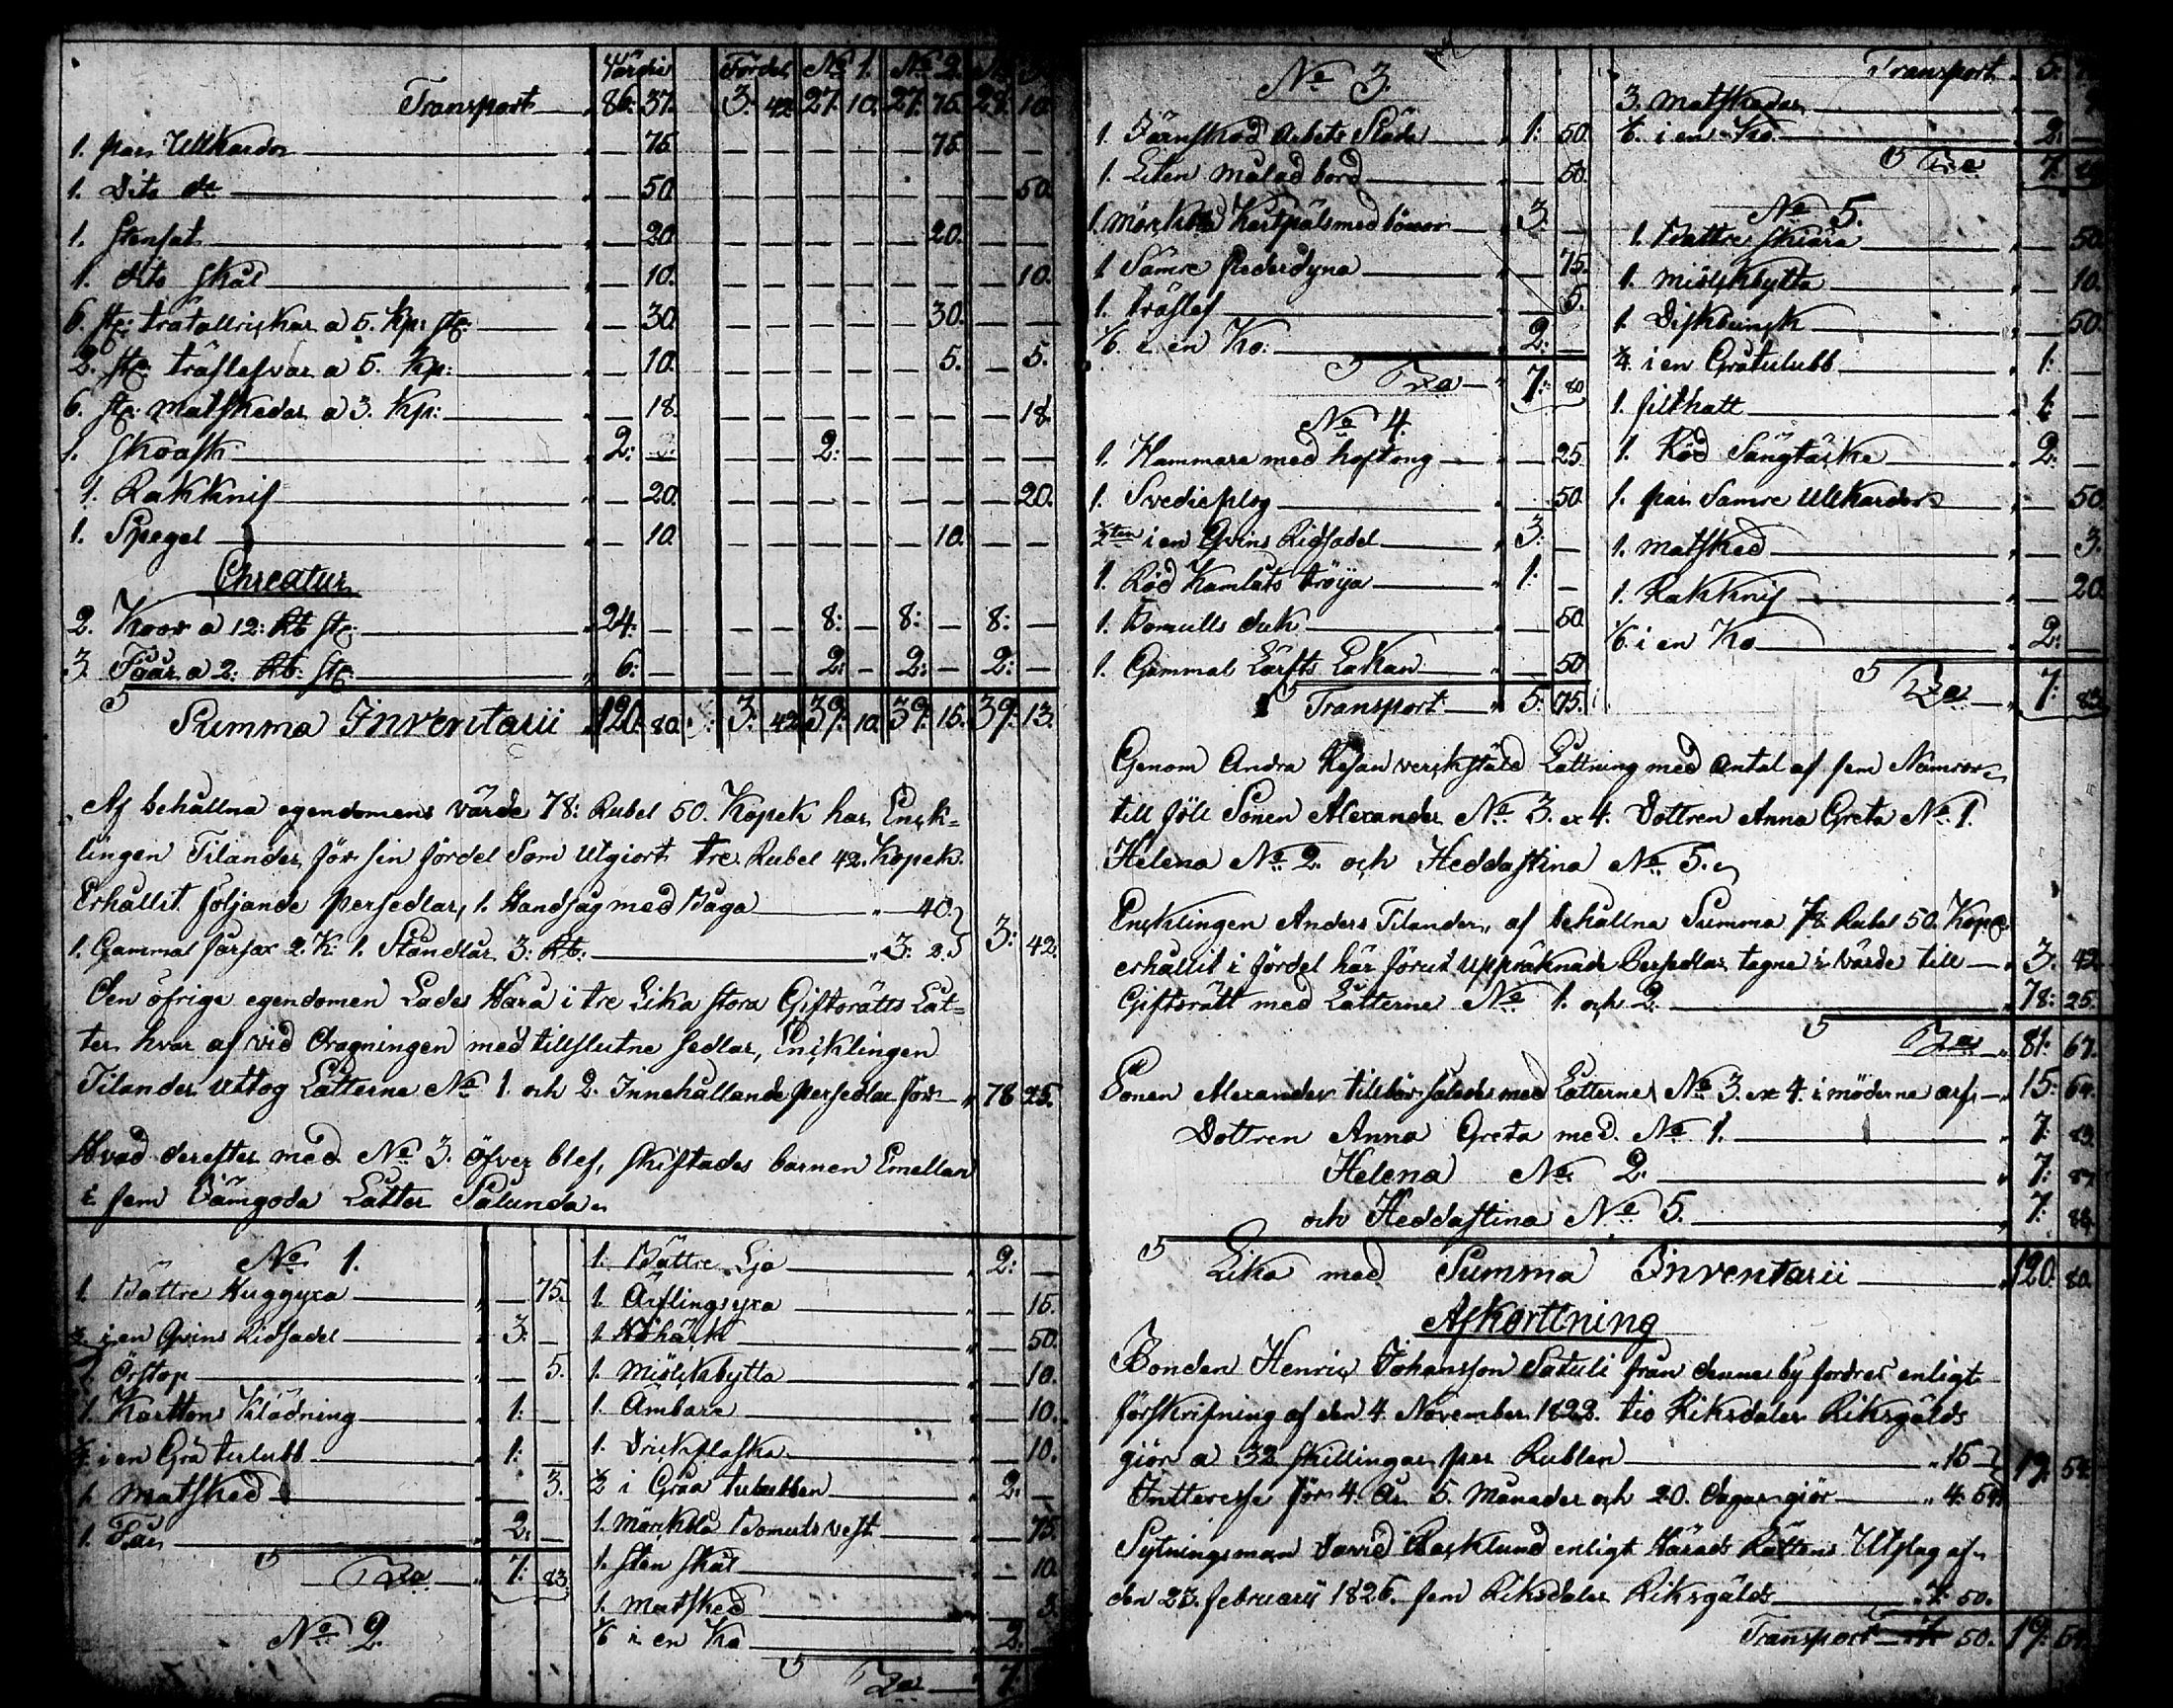 Värdie Fördel No 1. No 2.
Transport 86: 37. 3: 42 27: 10. 27: 75. 28: 10.
1. par Ullkardor — 75. 75.
1. Dito do — 50. 50.
1. Stenfat — 20. 20.
1. dito skål — 10. 10.
6. st: trätallrickar a 5. Kp: st: — 30. 30.
2. st: träslefvar a 5. Kp: — 10. 5. 5.
6. st: matskedar a 3. Kp: — 18. 18.
1. Skoask 2: — 2:
1. Rakknif — 20. 20.
1. Spegel — 10. 10.
Chreatur
2. Koor a 12: Rb st: 24: — 8: — 8: — 8: —
3. Fåår a 2: Rb: st: 6: — 2: — 2: — 2: —
Summa Inventarii 120: 80. 3: 42 39: 10. 39: 15. 39: 13.
Af behållna egendomens värde 78: Rubel 50. Kopek har Enck=
lingen Tilander, för sin fördel Som Utgiort tre Rubel 42. Kopek.
Erhållit följande persedlar, 1. Handsåg med Båga — 40.
1. Gammal farfax 2. K: 1. Ståndlår 3: Rb: 3: 2. 3: 42.
Den öfriga egendomen Lades Hära i tre Lika stora Giftorätts Låt=
ter hvar af vid Dragningen med tillslutne sedlar, Encklingen
Tilander Uttog Låtterne No 1. och 2. Innehållande persedlar för 78 25.
Hvad derefter med No 3. öfver blef, skiftades barnen Emellan
i fem Jämgoda Låtter Sålunda
No 1.
1. Bättre Huggyxa — 75.
i en Qvins Ridsadel 3: —
1. Örstop — 5.
1. Karttons Klädning 1: —
¼ i en Grå tulubb 1: —
1. Matsked — 3.
1. Får 2: —
Sa 7: 83
No 2.
1. Bättre Lja 2: —
1. Äflingsyxa — 15.
1. Höhäck — 50.
1. Miölckbytta — 10.
1. Ämbare — 10.
1. Drickflaska — 10.
½ i Gråa tulubben 2: —
1. Mörkblå Bomulsvest — 75.
1. Sten skål — 10.
1. Matsked — 3.
⅙ i en Ko 2: —
Sa 7:
No 3.
1. Järnskod Arbets Släda 1: 50.
1. Liten målad bord — 50.
1. Mörkblå Kastpäls med bönor 3: —
1. Sämre fiederdyna — 75.
1. träslef — 5.
⅙ i en Ko: 2: —
Sa 7: 80
No 4.
1. Hammare med hoftong — 25.
1. Svedieplog — 50.
½ten i en Qvins Ridsadel 3: —
1. Röd Kamlåts tröija 1: —
1. Bomulls duk — 50.
1. Gammal Lärfts Lakan — 50
Transport 5: 75.
Transport 5:
3. Matskedar — 9
⅙ i en Ko 2: —
Sa 7:
No 5.
1. Bättre skiära — 50.
1. Miölckbytta — 10.
1. Diskbunck — 50.
¼ i en Gråtulubb 1: —
1. filthatt 1: —
1. Röd Sängtäcke 2: —
1. par Sämre Ullkardor — 50
1. matsked — 3.
1. Rakknif — 20
⅙ i en Ko 2: —
Sa 7: 83
Genom Andra Resan verckstäld Låttning med Antal af fem Nomror
till föll Sonen Alexander No 3. & 4. Dottren Anna Greta No 1.
Helena No 2. och Heddastina No 5.
Encklingen Anders Tilander, af behållna Summa 78 Rubel 50. Kop:
erhållit i fördel här förut Uppräknade Persedlar tagne i värde till 3: 42.
Giftorätt med Låtterne No 1. och 2. 78: 25.
Sa 81: 67.
Sonen Alexander tillhör således med Låtterne No 3. & 4. i möderne arf 15: 64.
Dottren Anna Greta med No 1. 7: 83.
Helena No 2. 7:
och Heddastina No 5. 7:
Lika med Summa Inventarii 120: 80.
Afkorttning
Bonden Henric Johansson Satuli från denne by fordrar enligt
förskrifning af den 4. November 1822. tio Riksdaler Riksgälds
giör a 32 skillingar per Rublen 15 —
Intteresse för 4. År 5. Månader och 20. dagar giör 4: 54. 19: 54.
Sytningsman David Backlund enligt Härads Rättens Utslag af
den 23. februarij 1826. fem Riksdaler Riksgälds 7: 50.
Transport 7: 50. 19: 54.